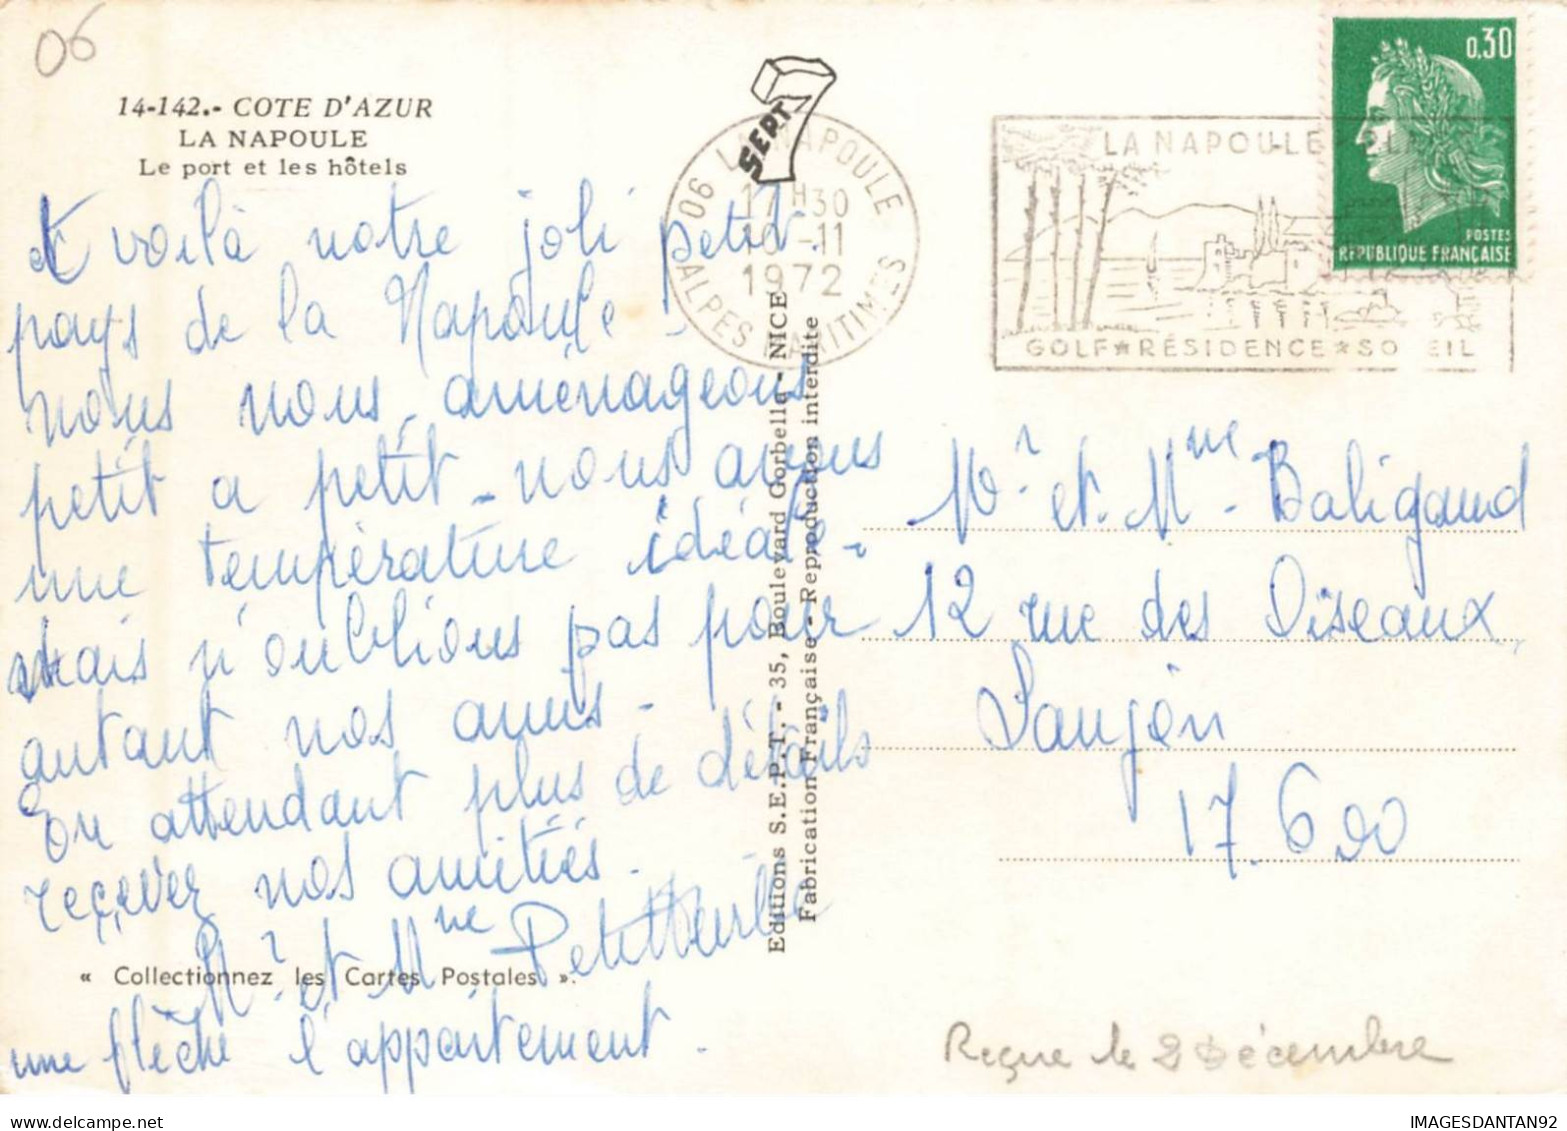 06
14-142.- COTE D'AZUR
LA NAPOULE
Le port et les hôtels
Et voilà notre joli petit
pays de la Napoule !
nous nous aménageons
petit a petit - nous avons
une température idéale -
Mais n'oublions pas pour
autant nos amis -
En attendant plus de détails
reçevez nos amitiés.
Mr et Mme
une flèche l'appartement.
« Collectionnez les Cartes Postales ».
SEPT 7
Editions S.E.P.T. - 35, Boulevard Gorbella - NICE
Fabrication Française - Reproduction interdite
06 LA NAPOULE
17H30
10-11
1972
ALPES MARITIMES
LA NAPOULE
GOLF★RÉSIDENCE★SO EIL
0,30
POSTES
REPUBLIQUE FRANÇAISE
Mr et Mme Baligand
12 rue des Oiseaux
Saujon
17.600
Reçue le 2 Décembre
IMAGESDANTAN92